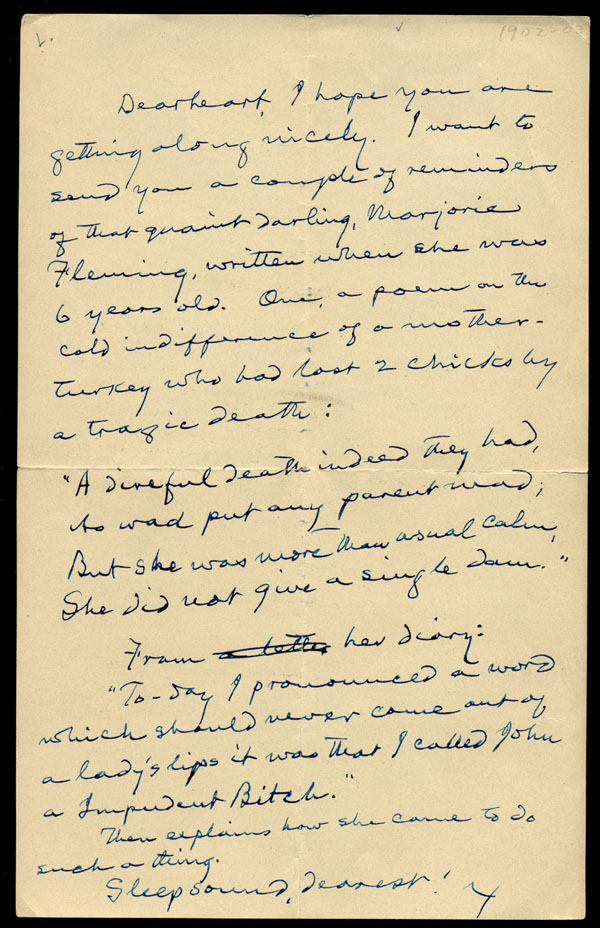 L.
1902-03
Dearheart, I hope you are
getting along nicely. I want to
send you a couple of reminders
of that quaint darling, Marjorie
Fleming, written when she was
6 years old. One, a poem on the
cold indifference of a mother-
turkey who had lost 2 chicks by
a tragic death:
"A direful death indeed they had,
As wad put any parent mad;
But she was more than usual calm,
She did not give a single dam."
From a letter her diary:
"To-day I pronounced a word
which should never come out of
a lady's lips it was that I called John
a Impudent Bitch."
Then explains how she came to do
such a thing.
Sleep sound, dearest! Y